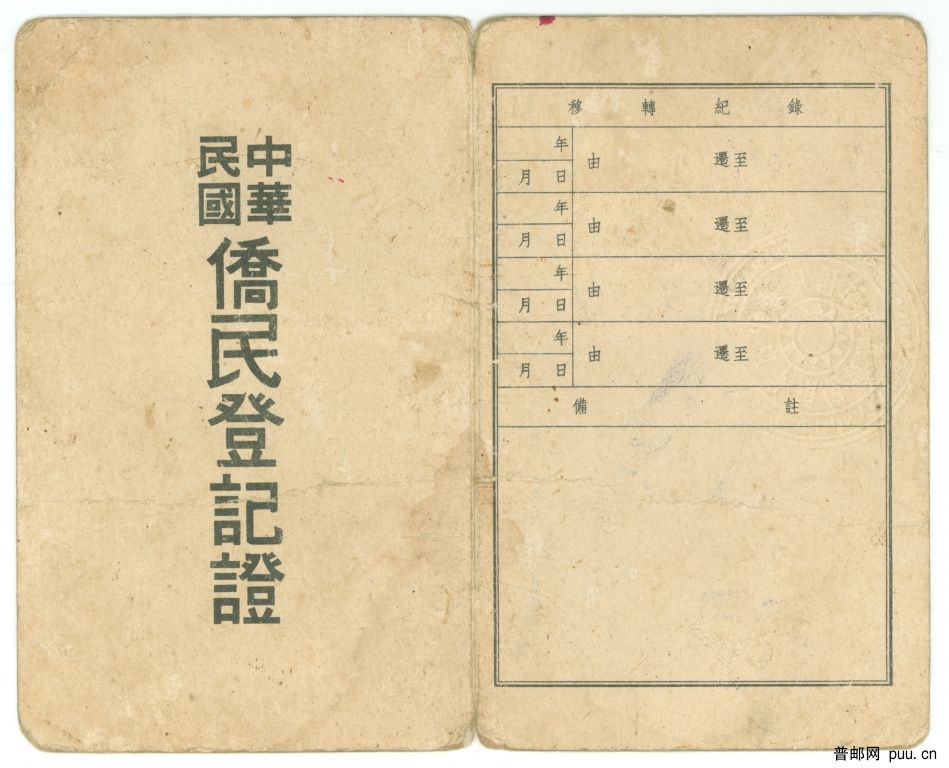 中華
民國
僑民登記證
移轉紀錄
年
月 日
由 遷至
年
月 日
由 遷至
年
月 日
由 遷至
年
月 日
由 遷至
備註
普邮网 puu.cn